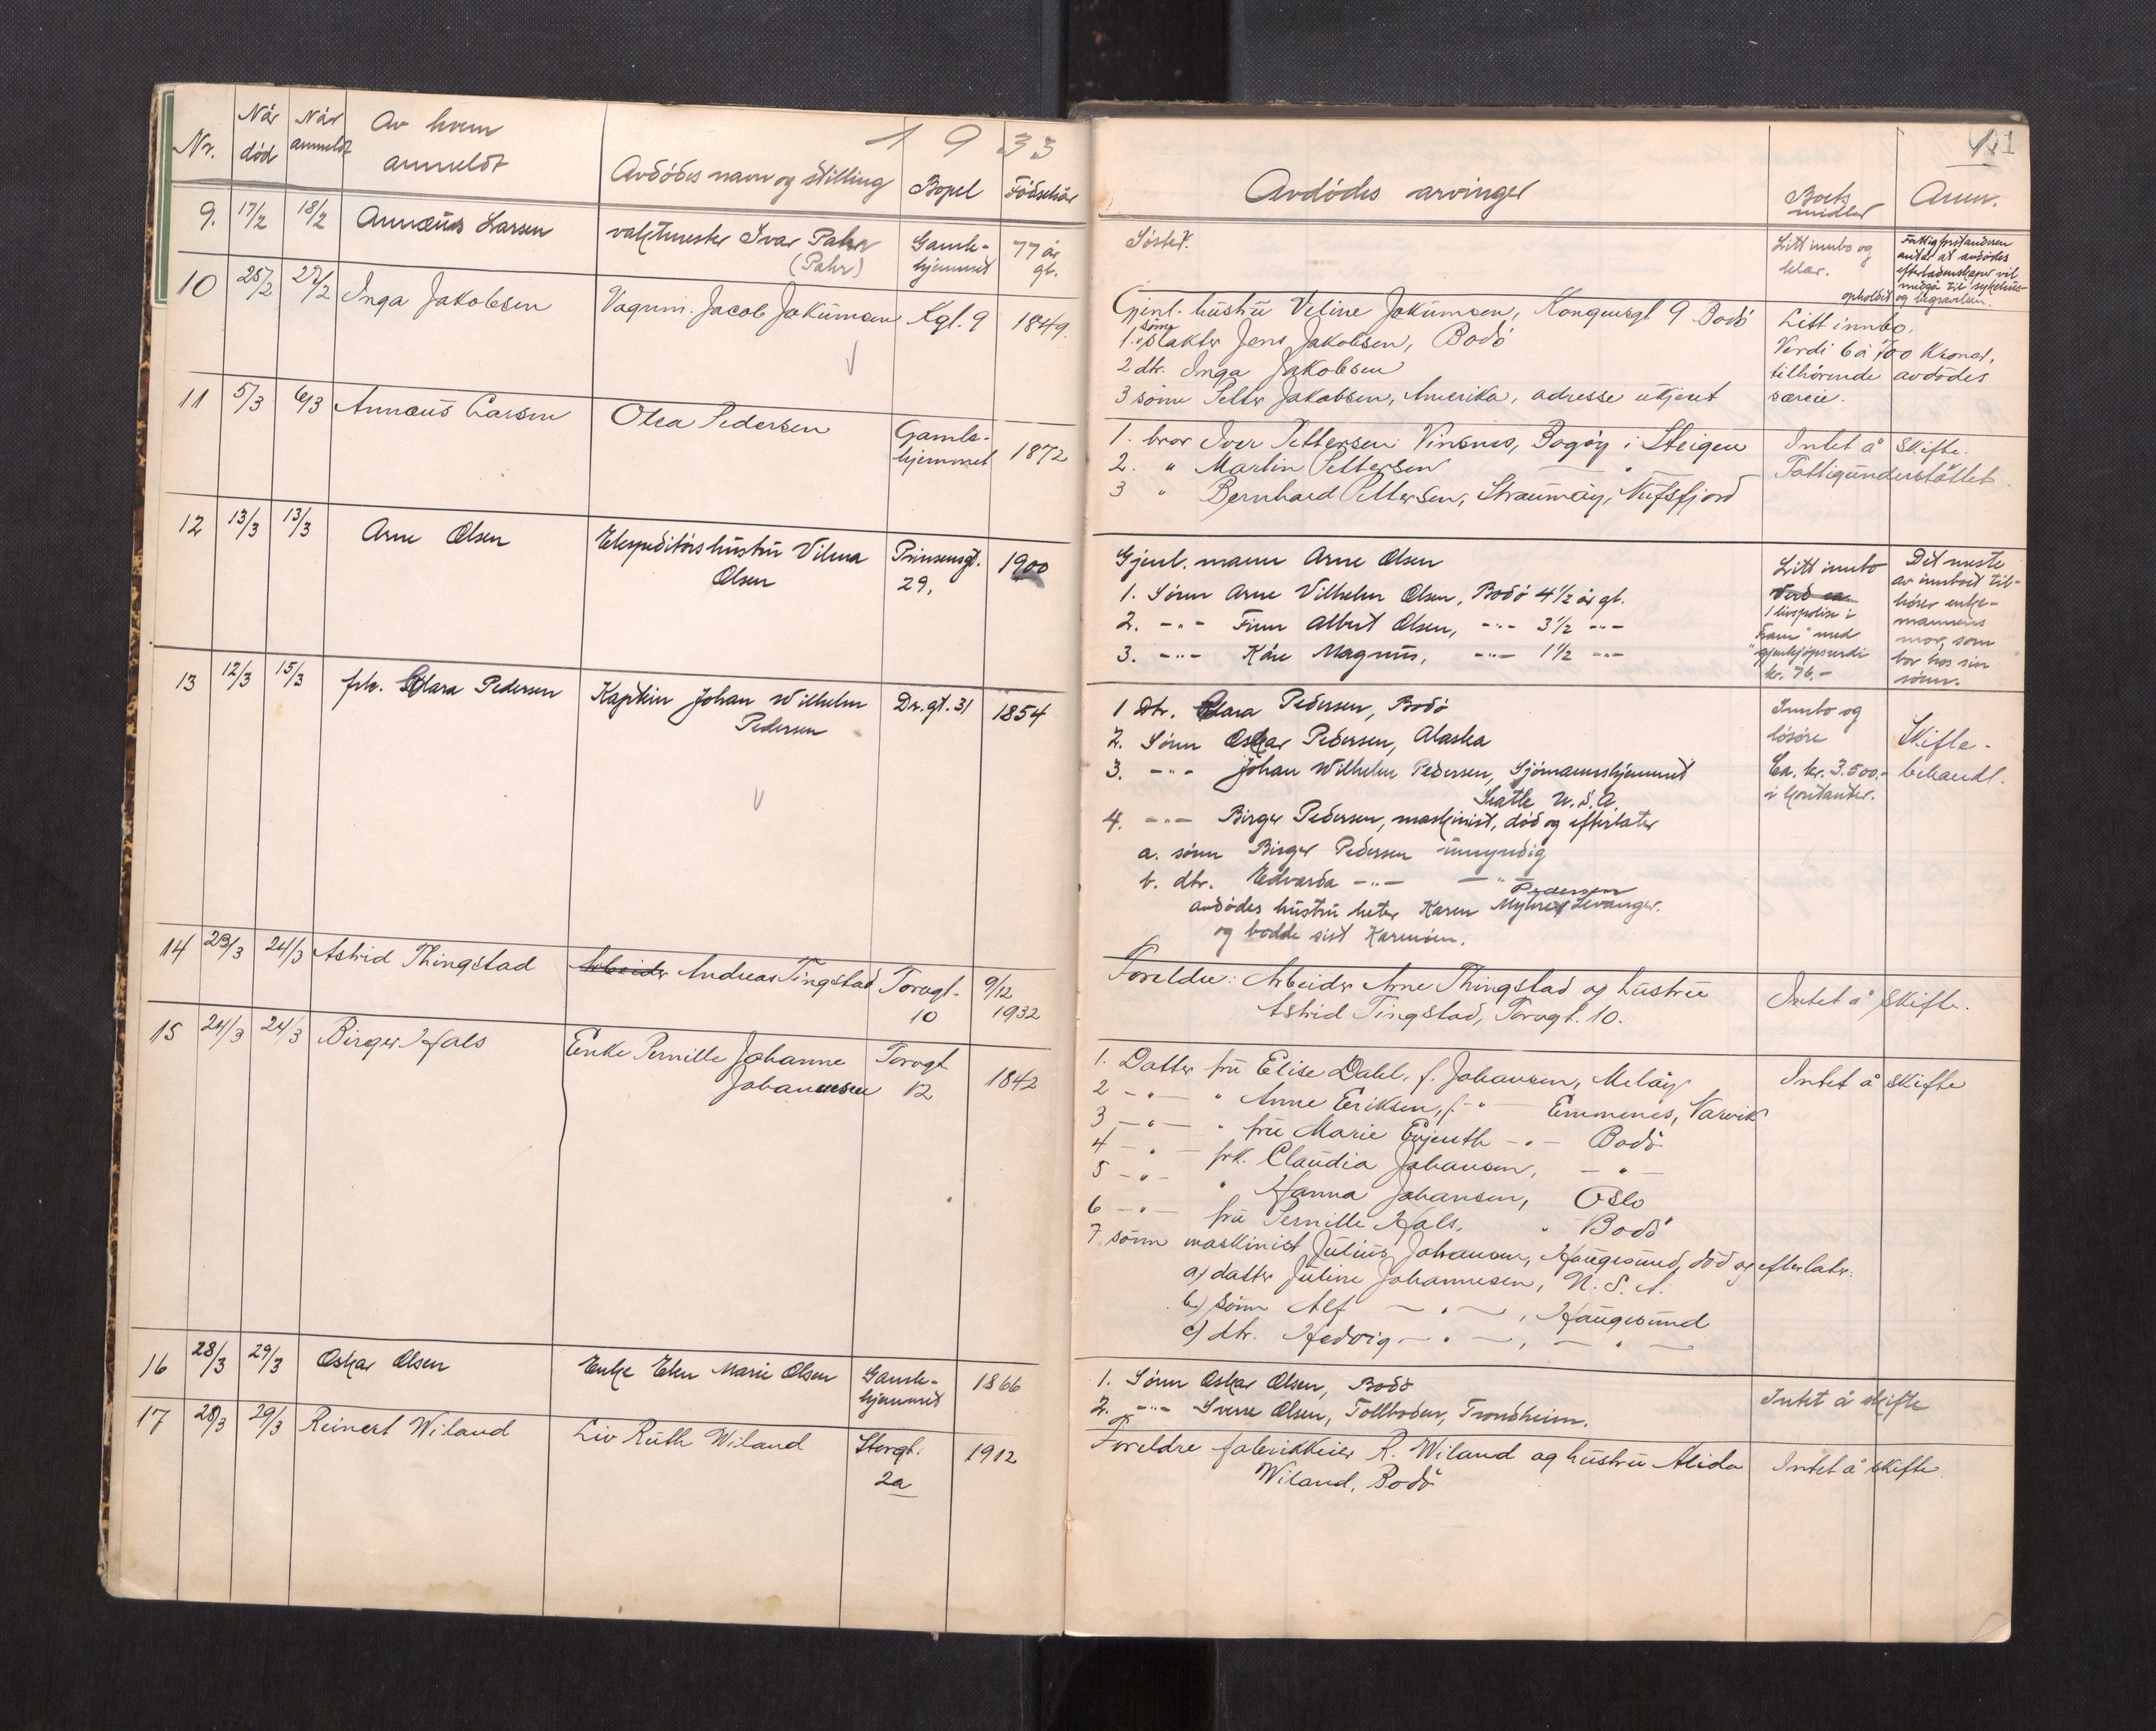 1933
Nr. Når død Når anmeldt Av hvem anmeldt Avdødes navn og stilling Bopel Fødselsår
9. 17/2 18/2 Annæus Larsen vaktmester Ivar Pahr Gamle- 77 år
(Pahr) hjemmet gl.
10 25/2 27/2 Inga Jakobsen Vognm. Jacob Jakumsen Kgl. 9 1849.
11 5/3 6/3 Annæus Larsen Olea Pedersen Gamle-
hjemmet 1872
12 13/3 13/3 Arne Olsen Ekspeditørshustru Vilma Prinsensgt. 1900
Olsen 29.
13 12/3 15/3 frk. Clara Pedersen Kaptein Johan Wilhelm Dr.gt. 31 1854
Pedersen
14 23/3 24/3 Astrid Thingstad Arbeider Andreas Tingstad Torvgt. 9/12
10 1932
15 24/3 24/3 Birger Hals Enke Pernille Johanne Torvgt
Johannesen 12 1842
16 28/3 29/3 Oskar Olsen Enke Elen Marie Olsen Gamle- 1866
hjemmet
17 28/3 29/3 Reinert Wiland Liv Ruth Wiland Storgt. 1912
2a
Avdødes arvinger Boets midler Anm.
Søster. Litt innbo og Fattigforstanderen
klær. antar at avdødes
efterladenskaper vil
medgå til sykehus-
opholdet og begravelsen.
Gjenl. hustru Veline Jakumsen, Kongensgt 9 Bodø Litt innbo.
1. sønn slakter Jens Jakobsen, Bodø Verdi 6 à 700 Kroner,
2 dtr. Inga Jakobsen tilhørende avdødes
3 sønn Petter Jakobsen, Amerika, adresse ukjent særeie.
1. bror Iver Pettersen Vinsnes, Bogøy i Steigen Intet å skifte.
2. " Martin Pettersen " Fattigunderstøttet.
3 " Bernhard Pettersen, Straumøy, Nufsfjord
Gjenl. mann Arne Olsen Litt innbo Det meste
1. Sønn Arne Vilhelm Olsen, Bodø 4 1/2 år gl. Verd ca. av innboet til-
2. -"- Finn Albert Olsen, -"- 3 1/2 -"- 1 livspolise i hører enke-
3. -"- Kåre Magnus, -"- 1 1/2 -"- "Fram" med mannens
gjenkjøpsverdi mor, som
kr. 76.- bor hos sin
sønn.
1 Dtr. Clara Pedersen, Bodø Innbo og
2. Sønn Oskar Pedersen, Alaska løsøre Skifte-
3. -"- Johan Wilhelm Pedersen, Sjømannshjemmet Ca. kr. 3.500.- behandl.
Seatle U.S.A. i kontanter.
4. -"- Birger Pedersen, maskinist, død og efterlater
a. sønn Birger Pedersen umyndig
b. dtr. Edvarda -"- -"-
Pedersen
avdødes hustru heter Karen Myhre, Levanger.
og bodde sist
Foreldre: Arbeider Arne Thingstad og hustru Intet å skifte.
Astrid Tingstad, Torvgt. 10.
1. Datter fru Elise Dahl, f. Johansen, Meløy Intet å skifte
2 -"- " Anne Eriksen, f. -"- Emmenes, Narvik
3 -"- fru Marie Evjenth -"- Bodø
4 -"- frk. Claudia Johansen, -"-
5 -"- " Hanna Johansen, Oslo
6 -"- fru Pernille Hals, " Bodø
7 sønn maskinist Julius Johansen, Haugesund, død og efterlater:
a) datter Juline Johannesen, U.S.A.
b) sønn Alf -"-, Haugesund
c) dtr. Hedvig -"-, -"-
1. Sønn Oskar Olsen, Bodø Intet å skifte
2. -"- Sverre Olsen, Tollboden, Trondheim.
Foreldre fabrikkeier R. Wiland og hustru Alida Intet å skifte.
Wiland, Bodø